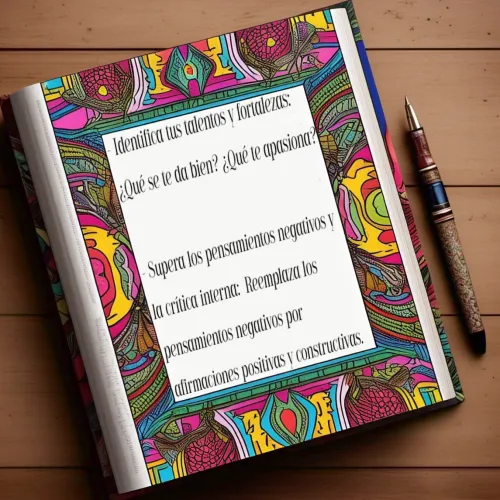 Identifica tus talentos y fortalezas:
¿Qué se te da bien? ¿Qué te apasiona?
- Supera los pensamientos negativos y
la crítica interna: Reemplaza los
pensamientos negativos por
afirmaciones positivas y constructivas.